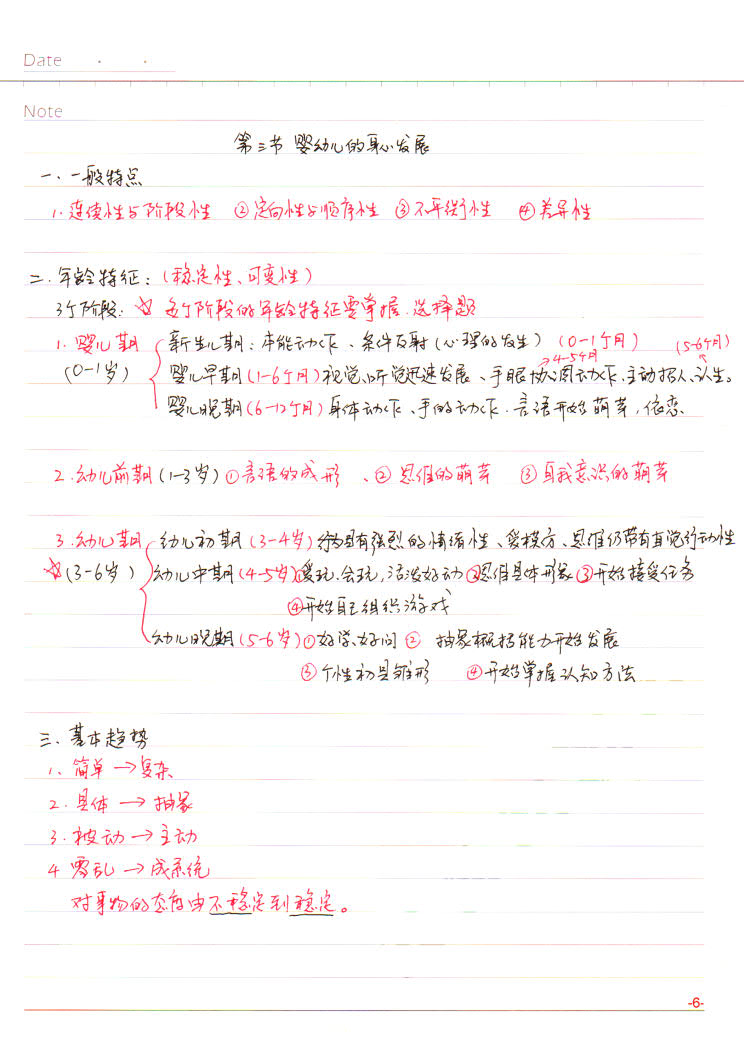 Date
Note
第三节 婴幼儿的身心发展
一、一般特点
1. 连续性与阶段性 ②定向性与顺序性 ③不平衡性 ④差异性
二. 年龄特征:(稳定性、可变性)
3个阶段: ☆ 每个阶段的年龄特征要掌握.选择题
1. 婴儿期 新生儿期: 本能动作、条件反射(心理的发生) (0-1个月) (5-6个月)
4-5个月
(0-1岁) 婴儿早期(1-6个月)视觉、听觉迅速发展、手眼协调动作、主动招人、认生。
婴儿晚期(6-12个月)身体动作、手的动作.言语开始萌芽,依恋.
2.幼儿前期(1-3岁)①言语的成形、②思维的萌芽 ③自我意识的萌芽
3.幼儿期 幼儿初期(3-4岁)行为具有强烈的情绪性、爱模仿、思维仍带有直觉行动性
☆(3-6岁) 幼儿中期(4-5岁)①爱玩、会玩,活泼好动②思维具体形象③开始接受任务
④开始自己组织游戏
幼儿晚期(5-6岁)①好学、好问② 抽象概括能力开始发展
③个性初具雏形 ④开始掌握认知方法
三、基本趋势
1、简单→复杂
2.具体→抽象
3.被动→主动
4 零乱→成系统
对事物的态度由不稳定到稳定。
-6-